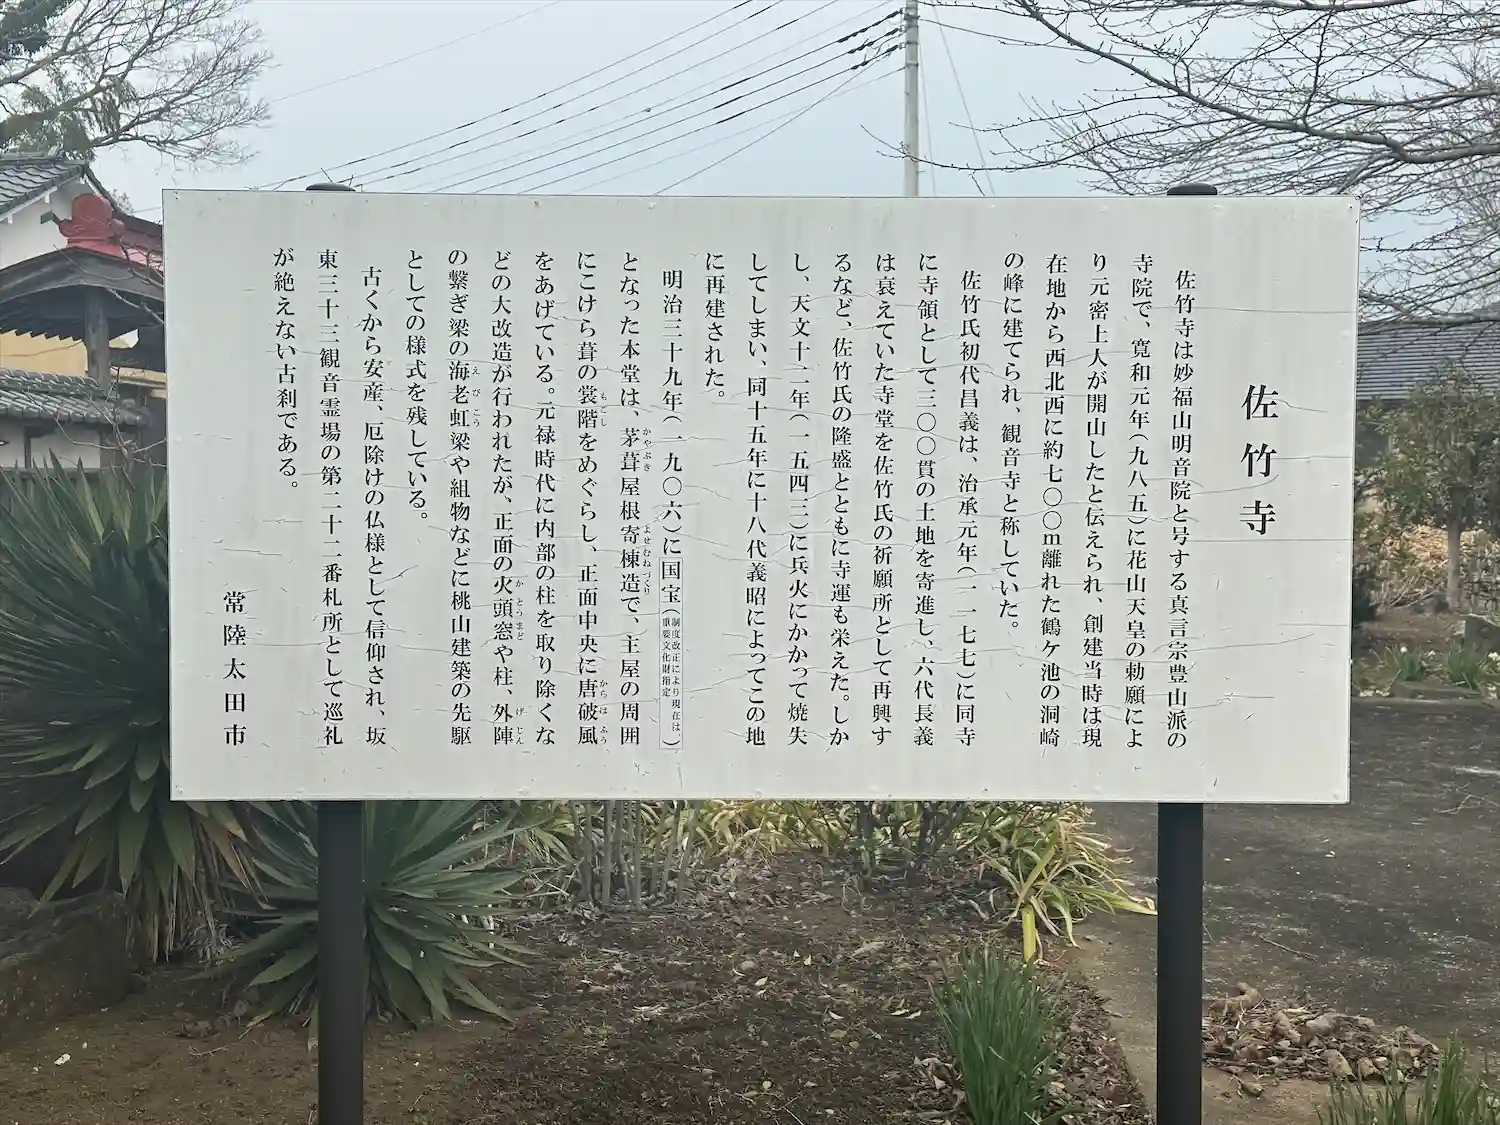 佐竹寺
佐竹寺は妙福山明音院と号する真言宗豊山派の
寺院で、寛和元年(九八五)に花山天皇の勅願によ
り元密上人が開山したと伝えられ、創建当時は現
在地から西北西に約七〇〇m離れた鶴ケ池の洞崎
の峰に建てられ、観音寺と称していた。
佐竹氏初代昌義は、治承元年(一一七七)に同寺
に寺領として三〇〇貫の土地を寄進し、六代長義
は衰えていた寺堂を佐竹氏の祈願所として再興す
るなど、佐竹氏の隆盛とともに寺運も栄えた。しか
し、天文十二年(一五四三)に兵火にかかって焼失
してしまい、同十五年に十八代義昭によってこの地
に再建された。
明治三十九年(一九〇六)に国宝(制度改正により現在は、重要文化財指定)
となった本堂は、茅葺屋根寄棟造で、主屋の周囲
かやぶき よせむねづくり
にこけら葺の裳階をめぐらし、正面中央に唐破風
もこし からはふう
をあげている。元禄時代に内部の柱を取り除くな
どの大改造が行われたが、正面の火頭窓や柱、外陣
かとうまど げじん
の繋ぎ梁の海老虹梁や組物などに桃山建築の先駆
えびこう
としての様式を残している。
古くから安産、厄除けの仏様として信仰され、坂
東三十三観音霊場の第二十二番札所として巡礼
が絶えない古刹である。
常陸太田市